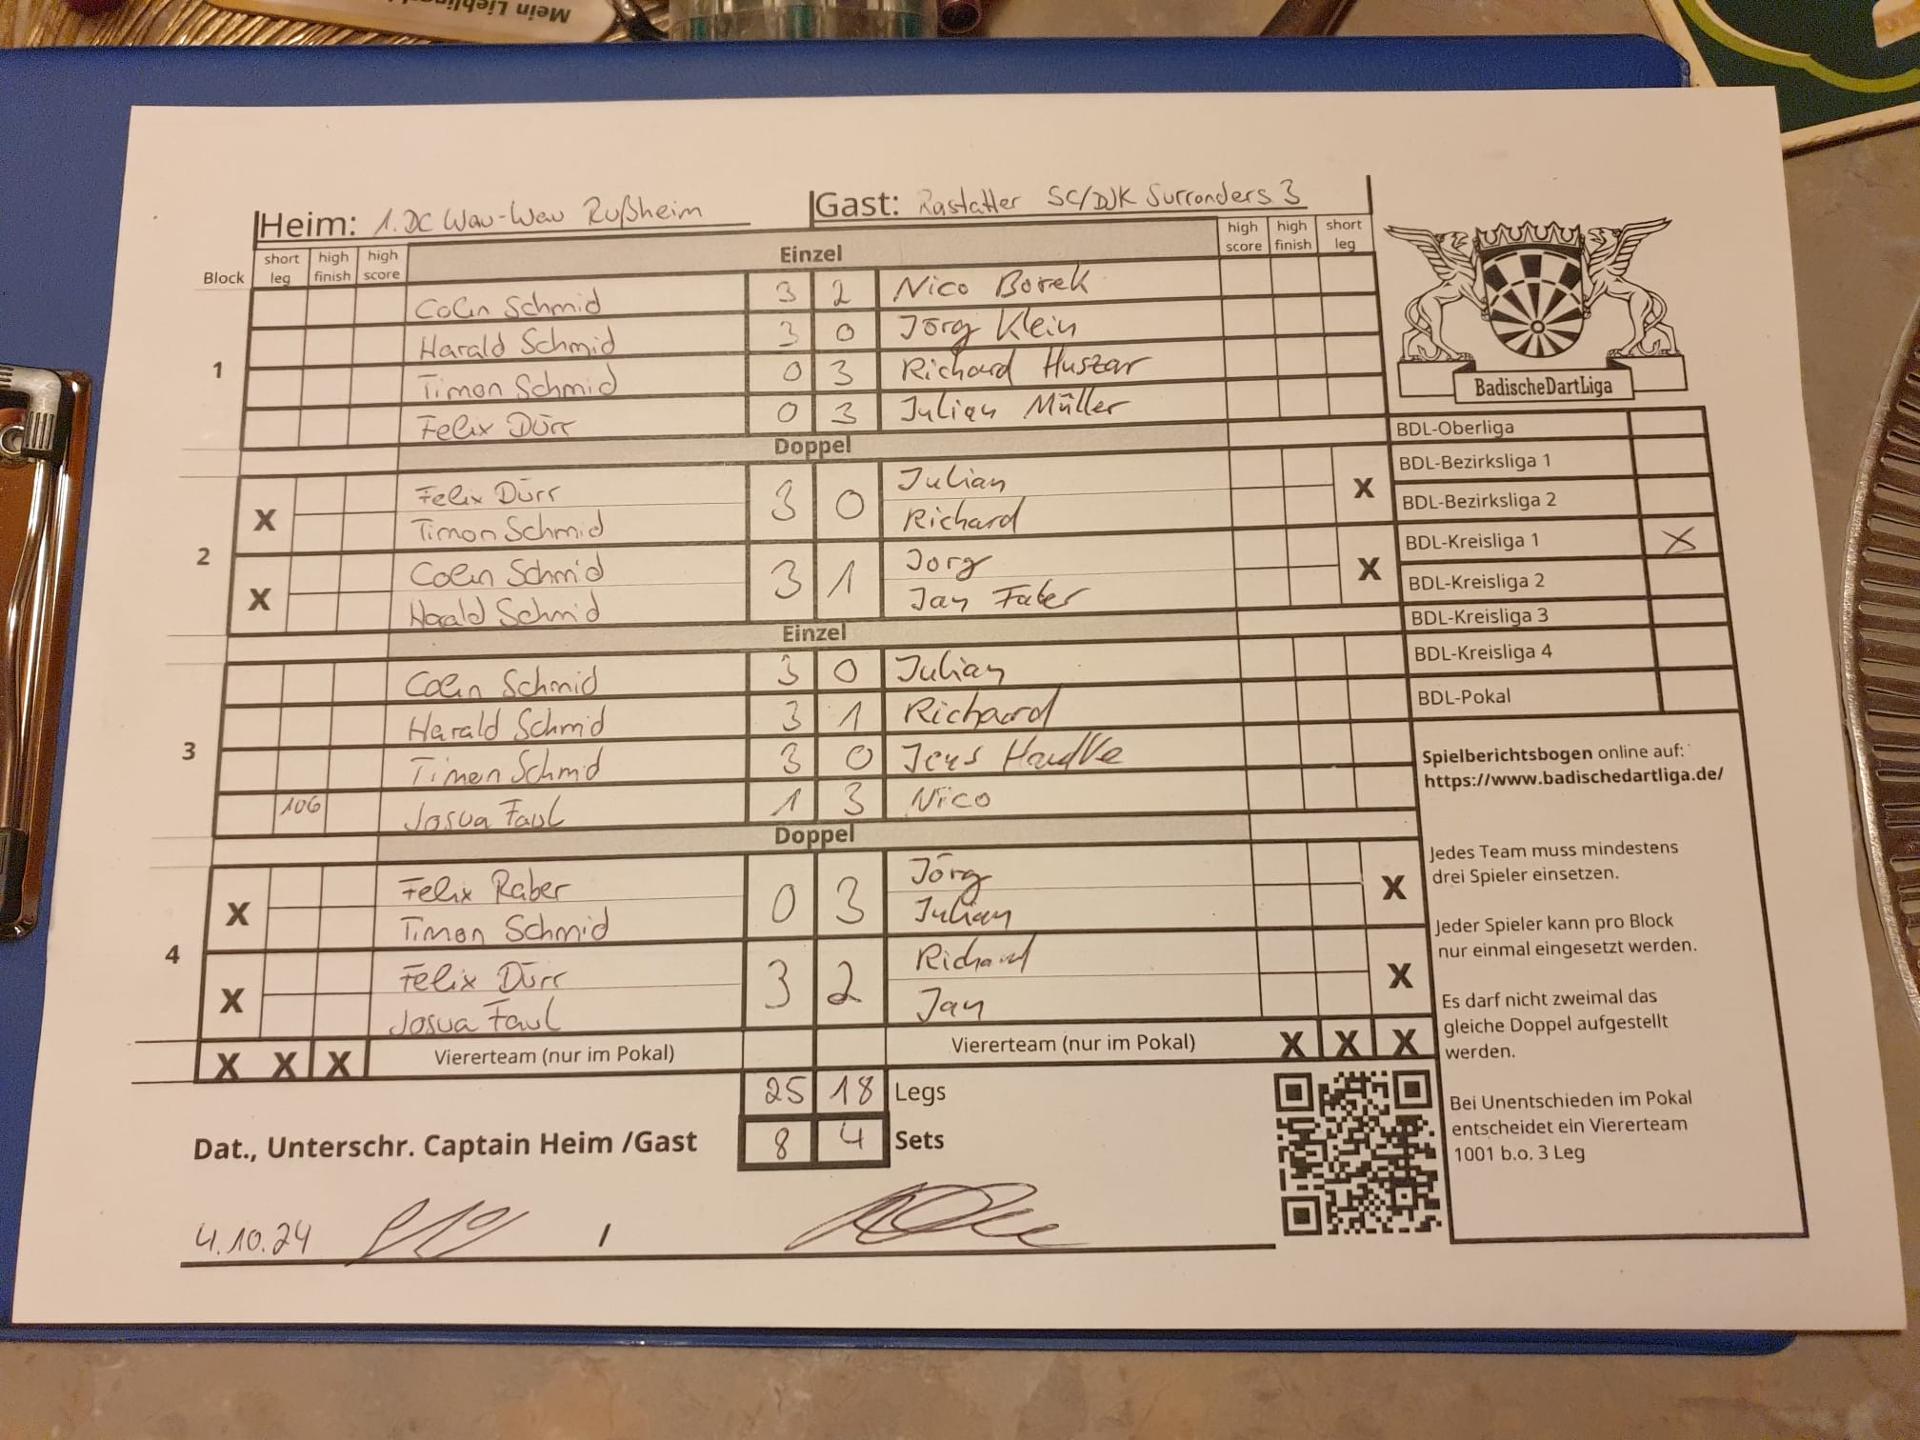 Mein Liebling
Heim: 1. DC Wau-Wau Rußheim
Gast: Rastatter SC/DJK Surronders 3
Block short leg high finish high score Einzel high score high finish short leg
1
Colin Schmid 3 2 Nico Borek
Harald Schmid 3 0 Jörg Klein
Timon Schmid 0 3 Richard Huszar
Felix Dürr 0 3 Julian Müller
Doppel
2
X Felix Dürr 3 0 Julian X
Timon Schmid Richard
X Colin Schmid 3 1 Jorg X
Harald Schmid Jan Faber
Einzel
3
Colin Schmid 3 0 Julian
Harald Schmid 3 1 Richard
Timon Schmid 3 0 Jens
106 Josua Faul 1 3 Nico
Doppel
4
X Felix Raber 0 3 Jörg X
Timon Schmid Julian
X Felix Dürr 3 2 Richard X
Josua Faul Jan
X X X Viererteam (nur im Pokal) Viererteam (nur im Pokal) X X X
25 18 Legs
8 4 Sets
Dat., Unterschr. Captain Heim /Gast
4.10.24 /
BadischeDartLiga
BDL-Oberliga
BDL-Bezirksliga 1
BDL-Bezirksliga 2
BDL-Kreisliga 1 X
BDL-Kreisliga 2
BDL-Kreisliga 3
BDL-Kreisliga 4
BDL-Pokal
Spielberichtsbogen online auf:
https://www.badischedartliga.de/
Jedes Team muss mindestens
drei Spieler einsetzen.
Jeder Spieler kann pro Block
nur einmal eingesetzt werden.
Es darf nicht zweimal das
gleiche Doppel aufgestellt
werden.
Bei Unentschieden im Pokal
entscheidet ein Viererteam
1001 b.o. 3 Leg